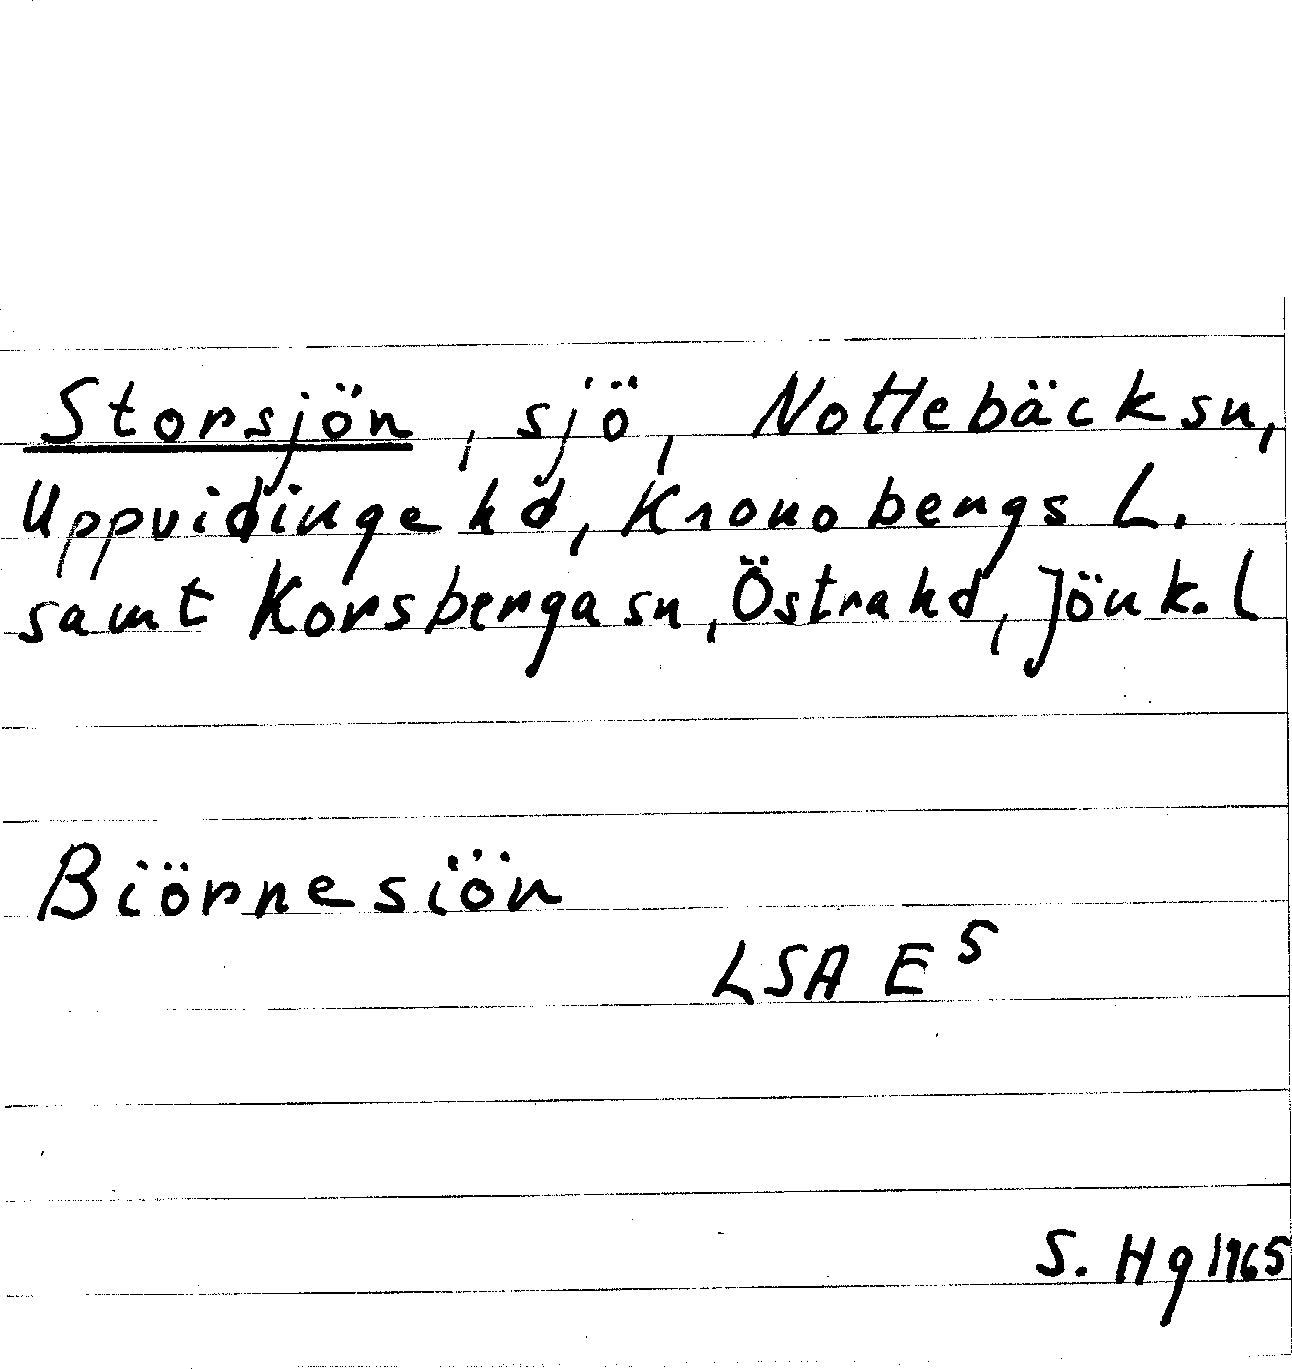 Storsjön, sjö, Nottebäck sn,
Uppvidinge hd, Kronobergs L.
samt Korsberga sn, Östra hd, Jönk. l
Biörnesiön
LSA E 5
S. Hg 1965